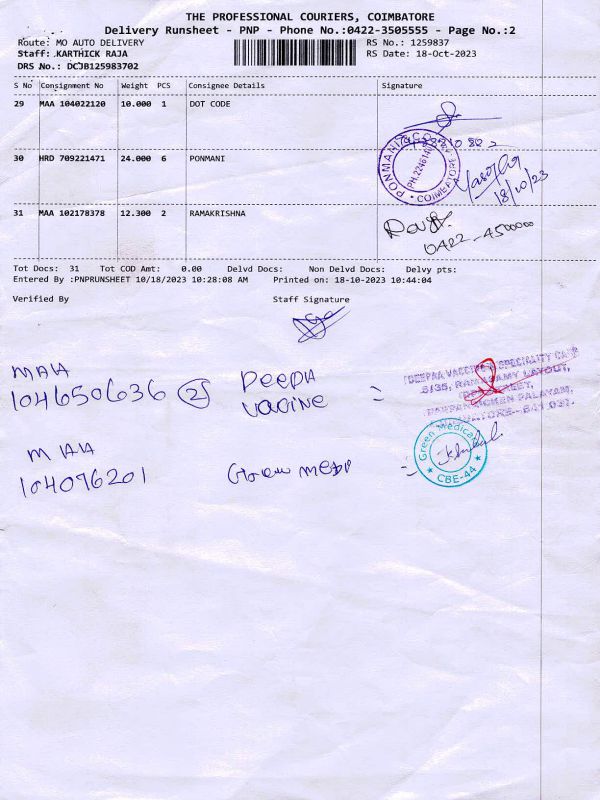 THE PROFESSIONAL COURIERS, COIMBATORE
Delivery Runsheet - PNP - Phone No.:0422-3505555 - Page No.:2
Route: MO AUTO DELIVERY RS No.: 1259837
Staff: KARTHICK RAJA RS Date: 18-Oct-2023
DRS No.: DCJB125983702
S No Consignment No Weight PCS Consignee Details Signature
29 MAA 104022120 10.000 1 DOT CODE
30 HRD 709221471 24.000 6 PONMANI
PONMANI & CO
PH.22461
COIMBATORE
18/10/23
31 MAA 102178378 12.300 2 RAMAKRISHNA
0422-4500000
Tot Docs: 31 Tot COD Amt: 0.00 Delvd Docs: Non Delvd Docs: Delvy pts:
Entered By :PNPRUNSHEET 10/18/2023 10:28:08 AM Printed on: 18-10-2023 10:44:04
Verified By Staff Signature
MAA
104650636 (2) DEEPA
VACINE =
DEEPAA VACCINE SPECIALITY CARE
5/35, RAMASAMY LAYOUT,
MAA
104096201 Green MEDI =
Green Medical
CBE-44